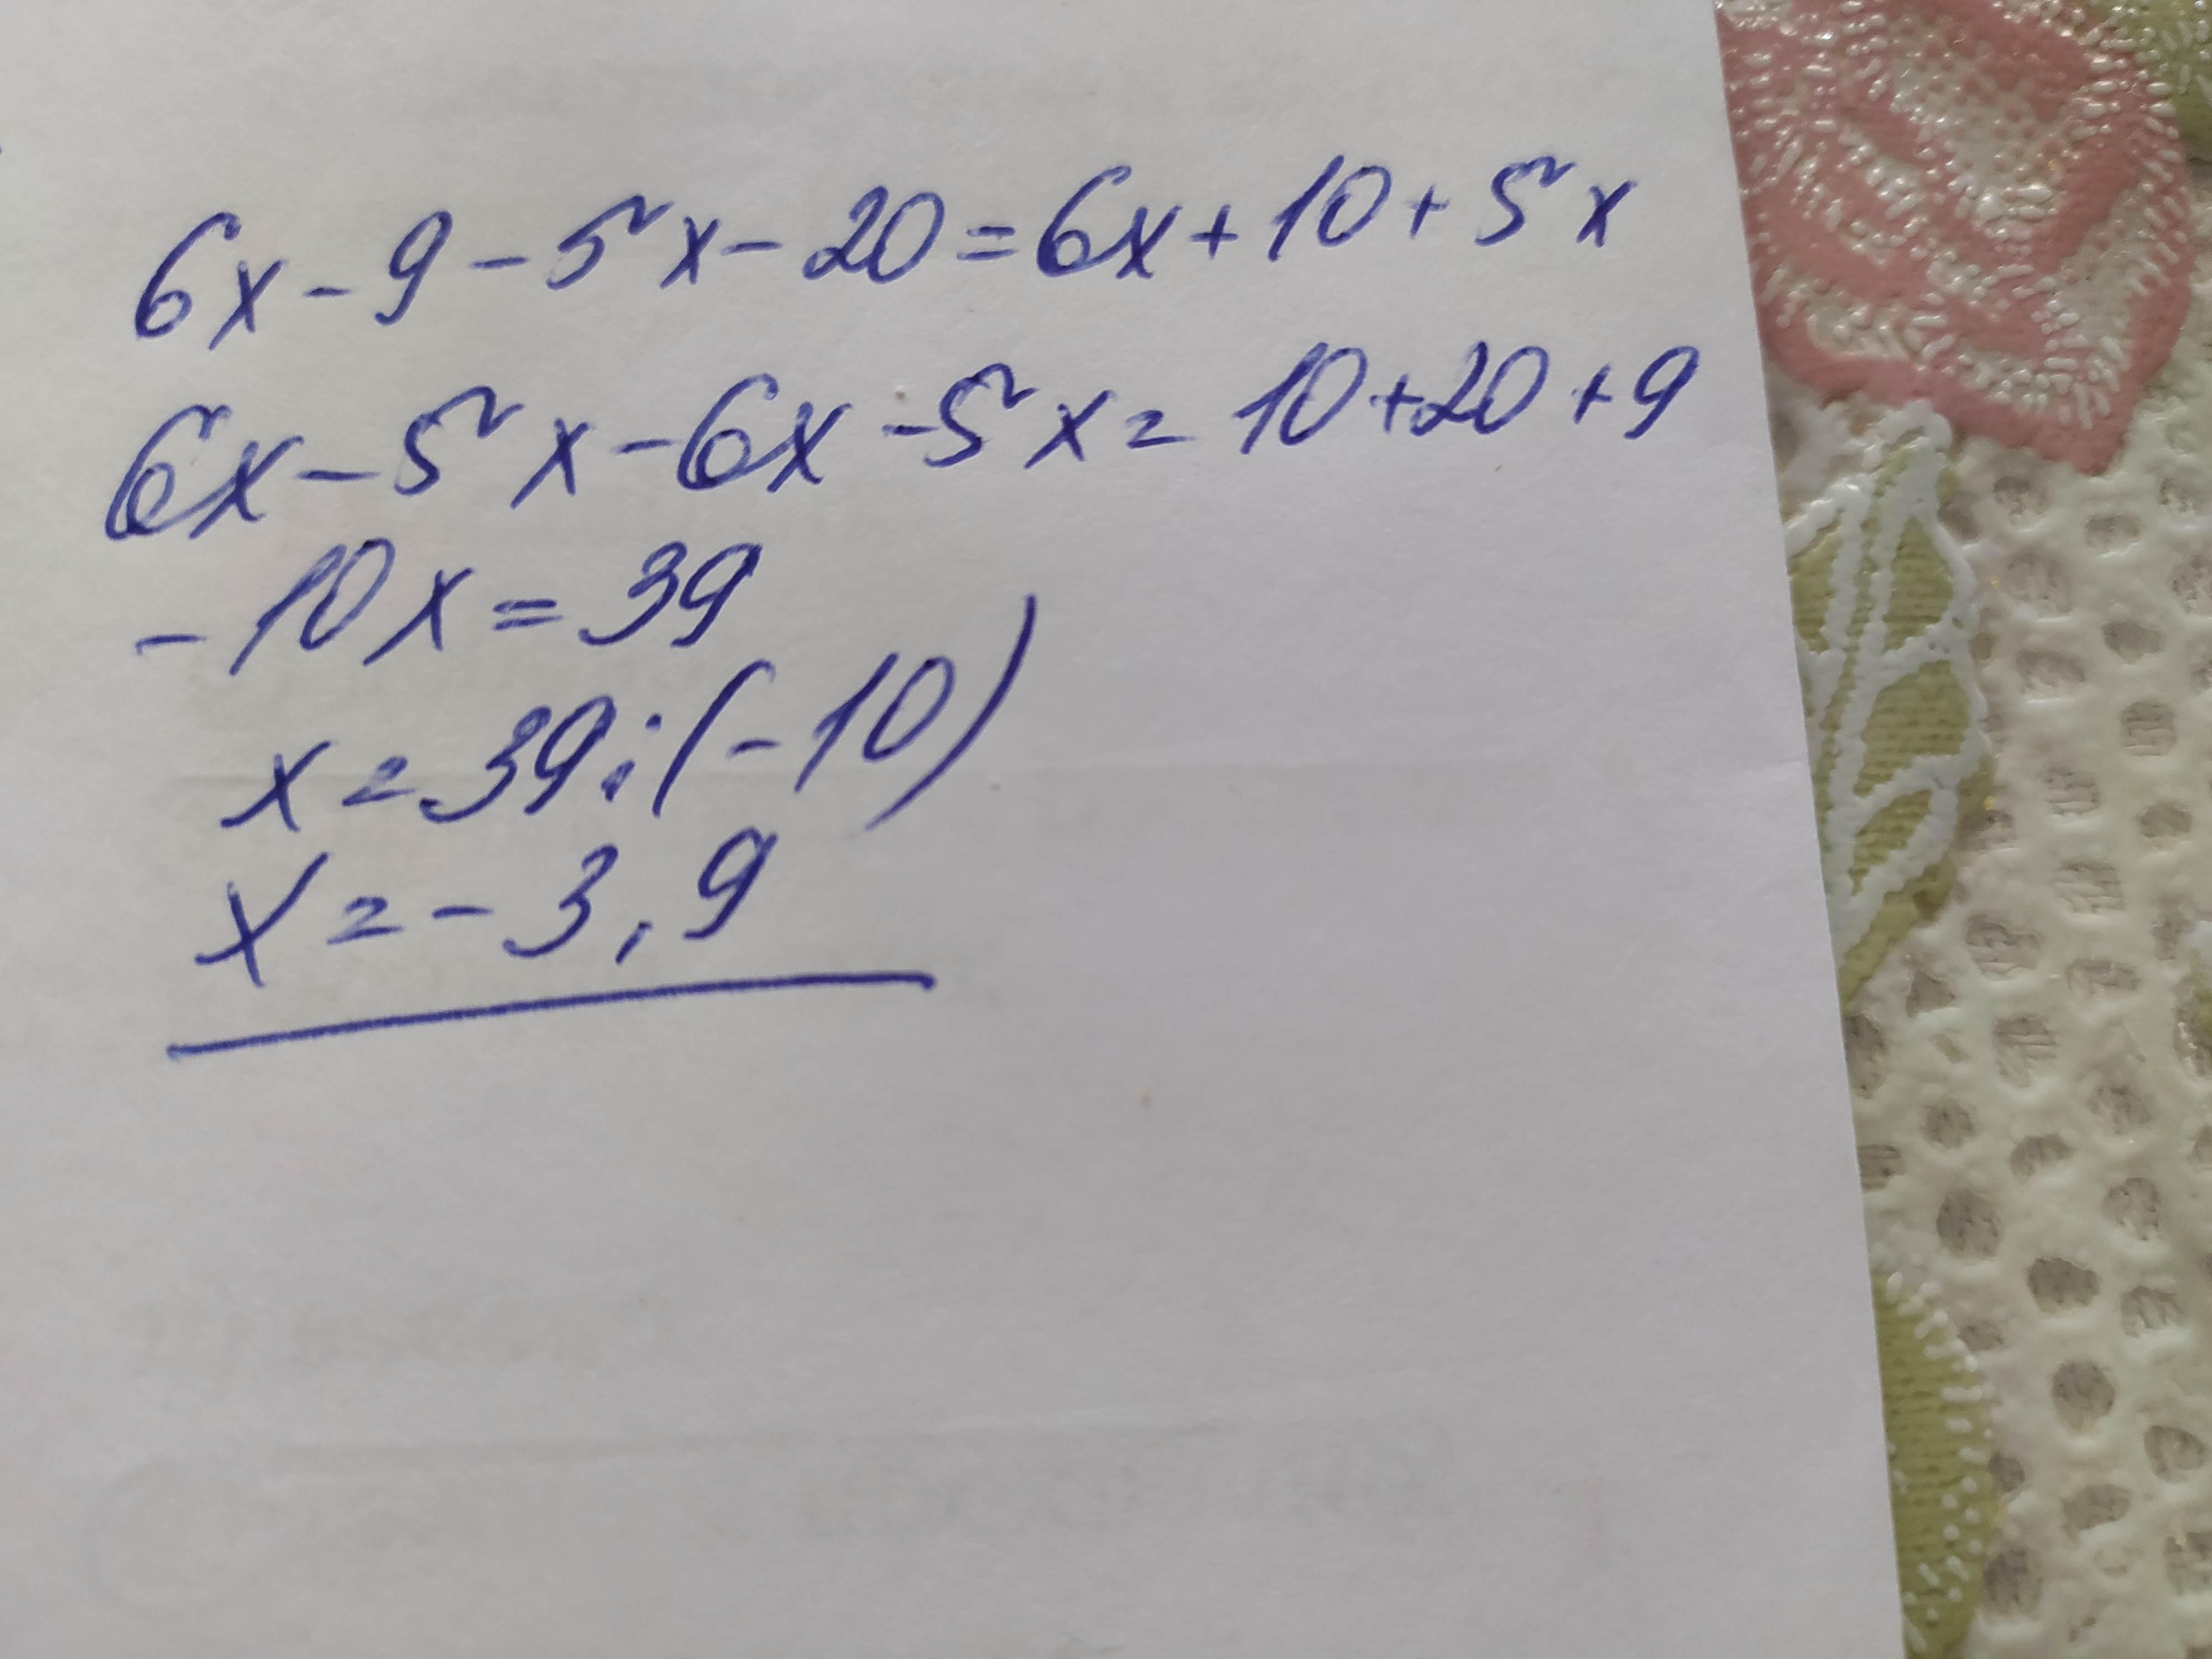 6x-9-5x-20=6x+10+5x
6x-5x-6x-5x=10+20+9
-10x=39
x=39:(-10)
x=-3,9